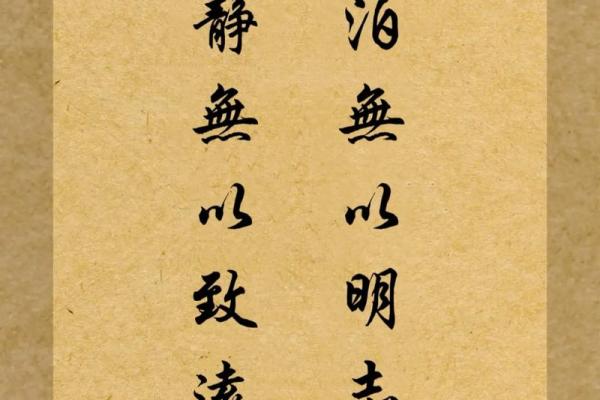 泊無以明志
靜無以致遠